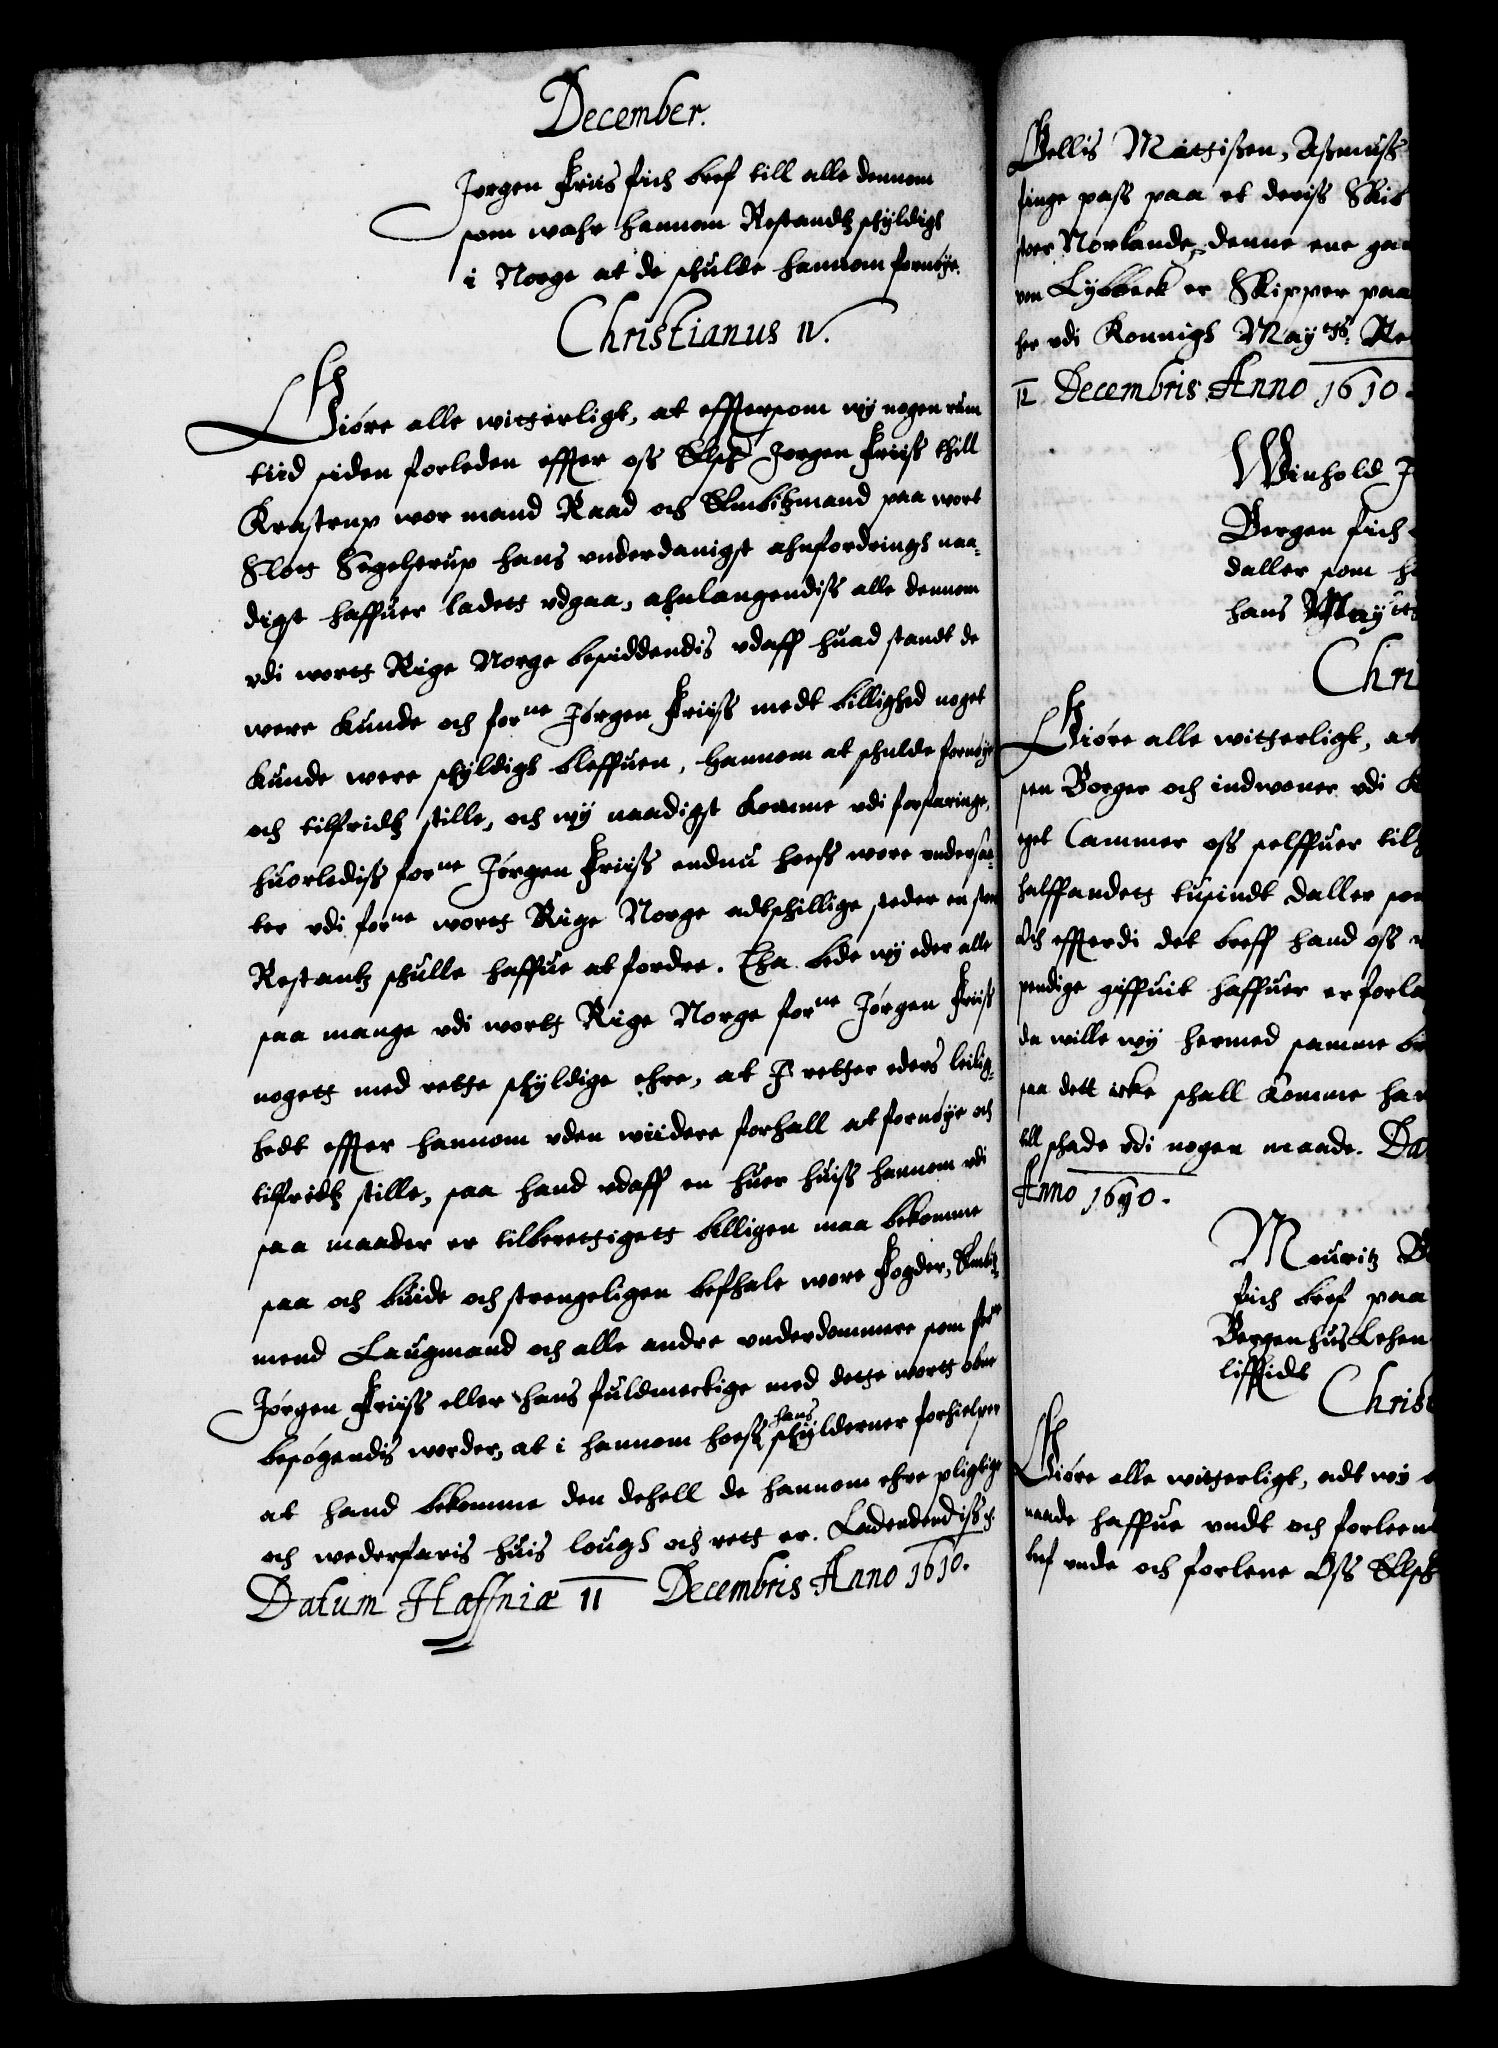 December.
Jørgen Friis fich bref till alle dennom
som wahr hannom Restandtz schyldigh
i Norge at de schulde hannom fornøye.
Christianus IV.
Giøre alle witterligt, at effttersom wy nogen rum
tiid siden forleden effter oss Elsch Jørgen Friiss thill
Krastrup wor mand Raad och Embitzmand paa wort
Slott Segelstrup hans underdanigst ahnfordringh naa-
digst haffuer ladett vdgaa, ahnlangendiss alle dennom
vdi wortt Rige Norge besiddendis vdaff huad standt de
were kunde och forne Jørgen Friiss medt billighed noget
kunde were schyldigh bleffuen, hannom at schulde fornøye
och tilfridtz stille, och wy naadigst komme vdi forfaringe,
huorlediss forne Jørgen Friiss endnu hoess wore undersaa-
ter vdi forne wortt Rige Norge adtschillige steder en stor
Restantz schulle haffue at fordre. Tha bede wy eder alle
saa mange vdi wortt Rige Norge forne Jørgen Friiss
nogett med rette schyldige ehre, at I retter eders leilig-
hedt effter hannom vden wiidere forhall at fornøye och
tilfridtz stille, saa hand vdaff en huer huiss hannom vdi
saa maader er tilberettigett billigen maa bekomme
saa och biude och strengeligen befhale wore Fogder, Embitz-
mend Laugmand och alle andre underdommere som forne
Jørgen Friiss eller hans fuldmectige med dette wortt obne
besøgendis worder, at i hannom hoess hans schylderner forhielper
at hand bekomme den dehell de hannom ehre pligtige
och wederfaris huis lough och rett er. Ladendendiss ej.
Datum Haffniæ 11 Decembris Anno 1610.
Gellis Mattissen, Assmuss
finge pass paa et deriss Skib
paa Norlande, denne ene gan
von Lybbeck er Skipper paa
her vdi Konnigh Maytts: Re
12 Decembris Anno 1610.
Winhold J
Bergen fich
daller som h
hans Maytts
Chri
Giøre alle witterligt, at
sen Borger och indwoner vdi K
eget Cammer oss selffuer till
halffandett tusindt daller som
Och effterdi det breff hand oss
pendige giffuit haffuer er forla
da wille wy hermed samme br
saa dett icke schall komme han
till schade vdi nogen maade. Da
Anno 1610.
Mouritz B
fich bref paa
Bergenhus Lehen
liffstidt
Christ
Giøre alle witterligt, adt wy
naade haffue undt och forleent
bref unde och forlene Oss Elsch